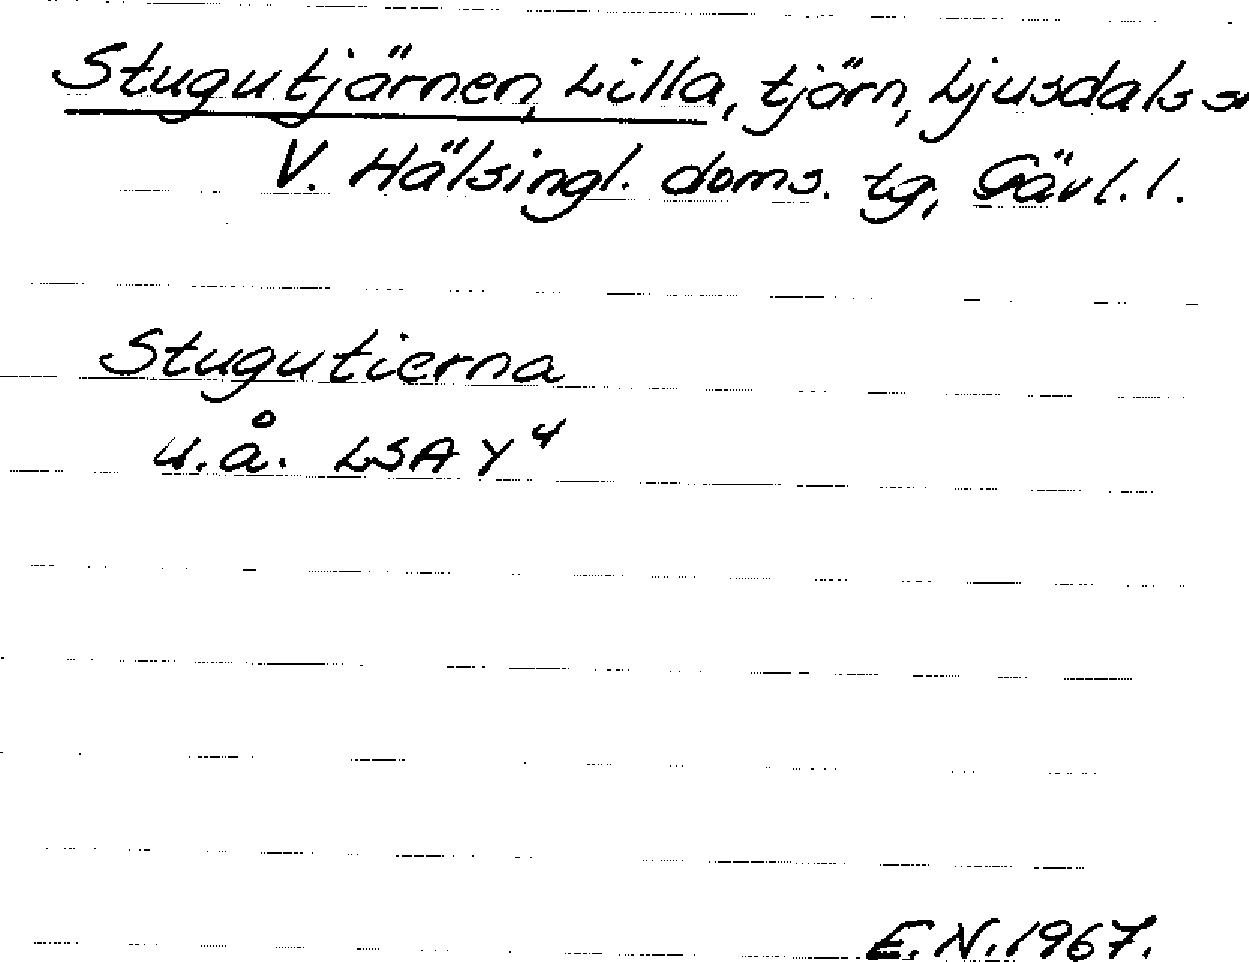 Stugutjärnen, Lilla, tjärn, Ljusdals sn
V. Hälsingl. doms. tg, Gävl. l.
Stugutierna
u.å. LSA Y⁴
E.N. 1967.